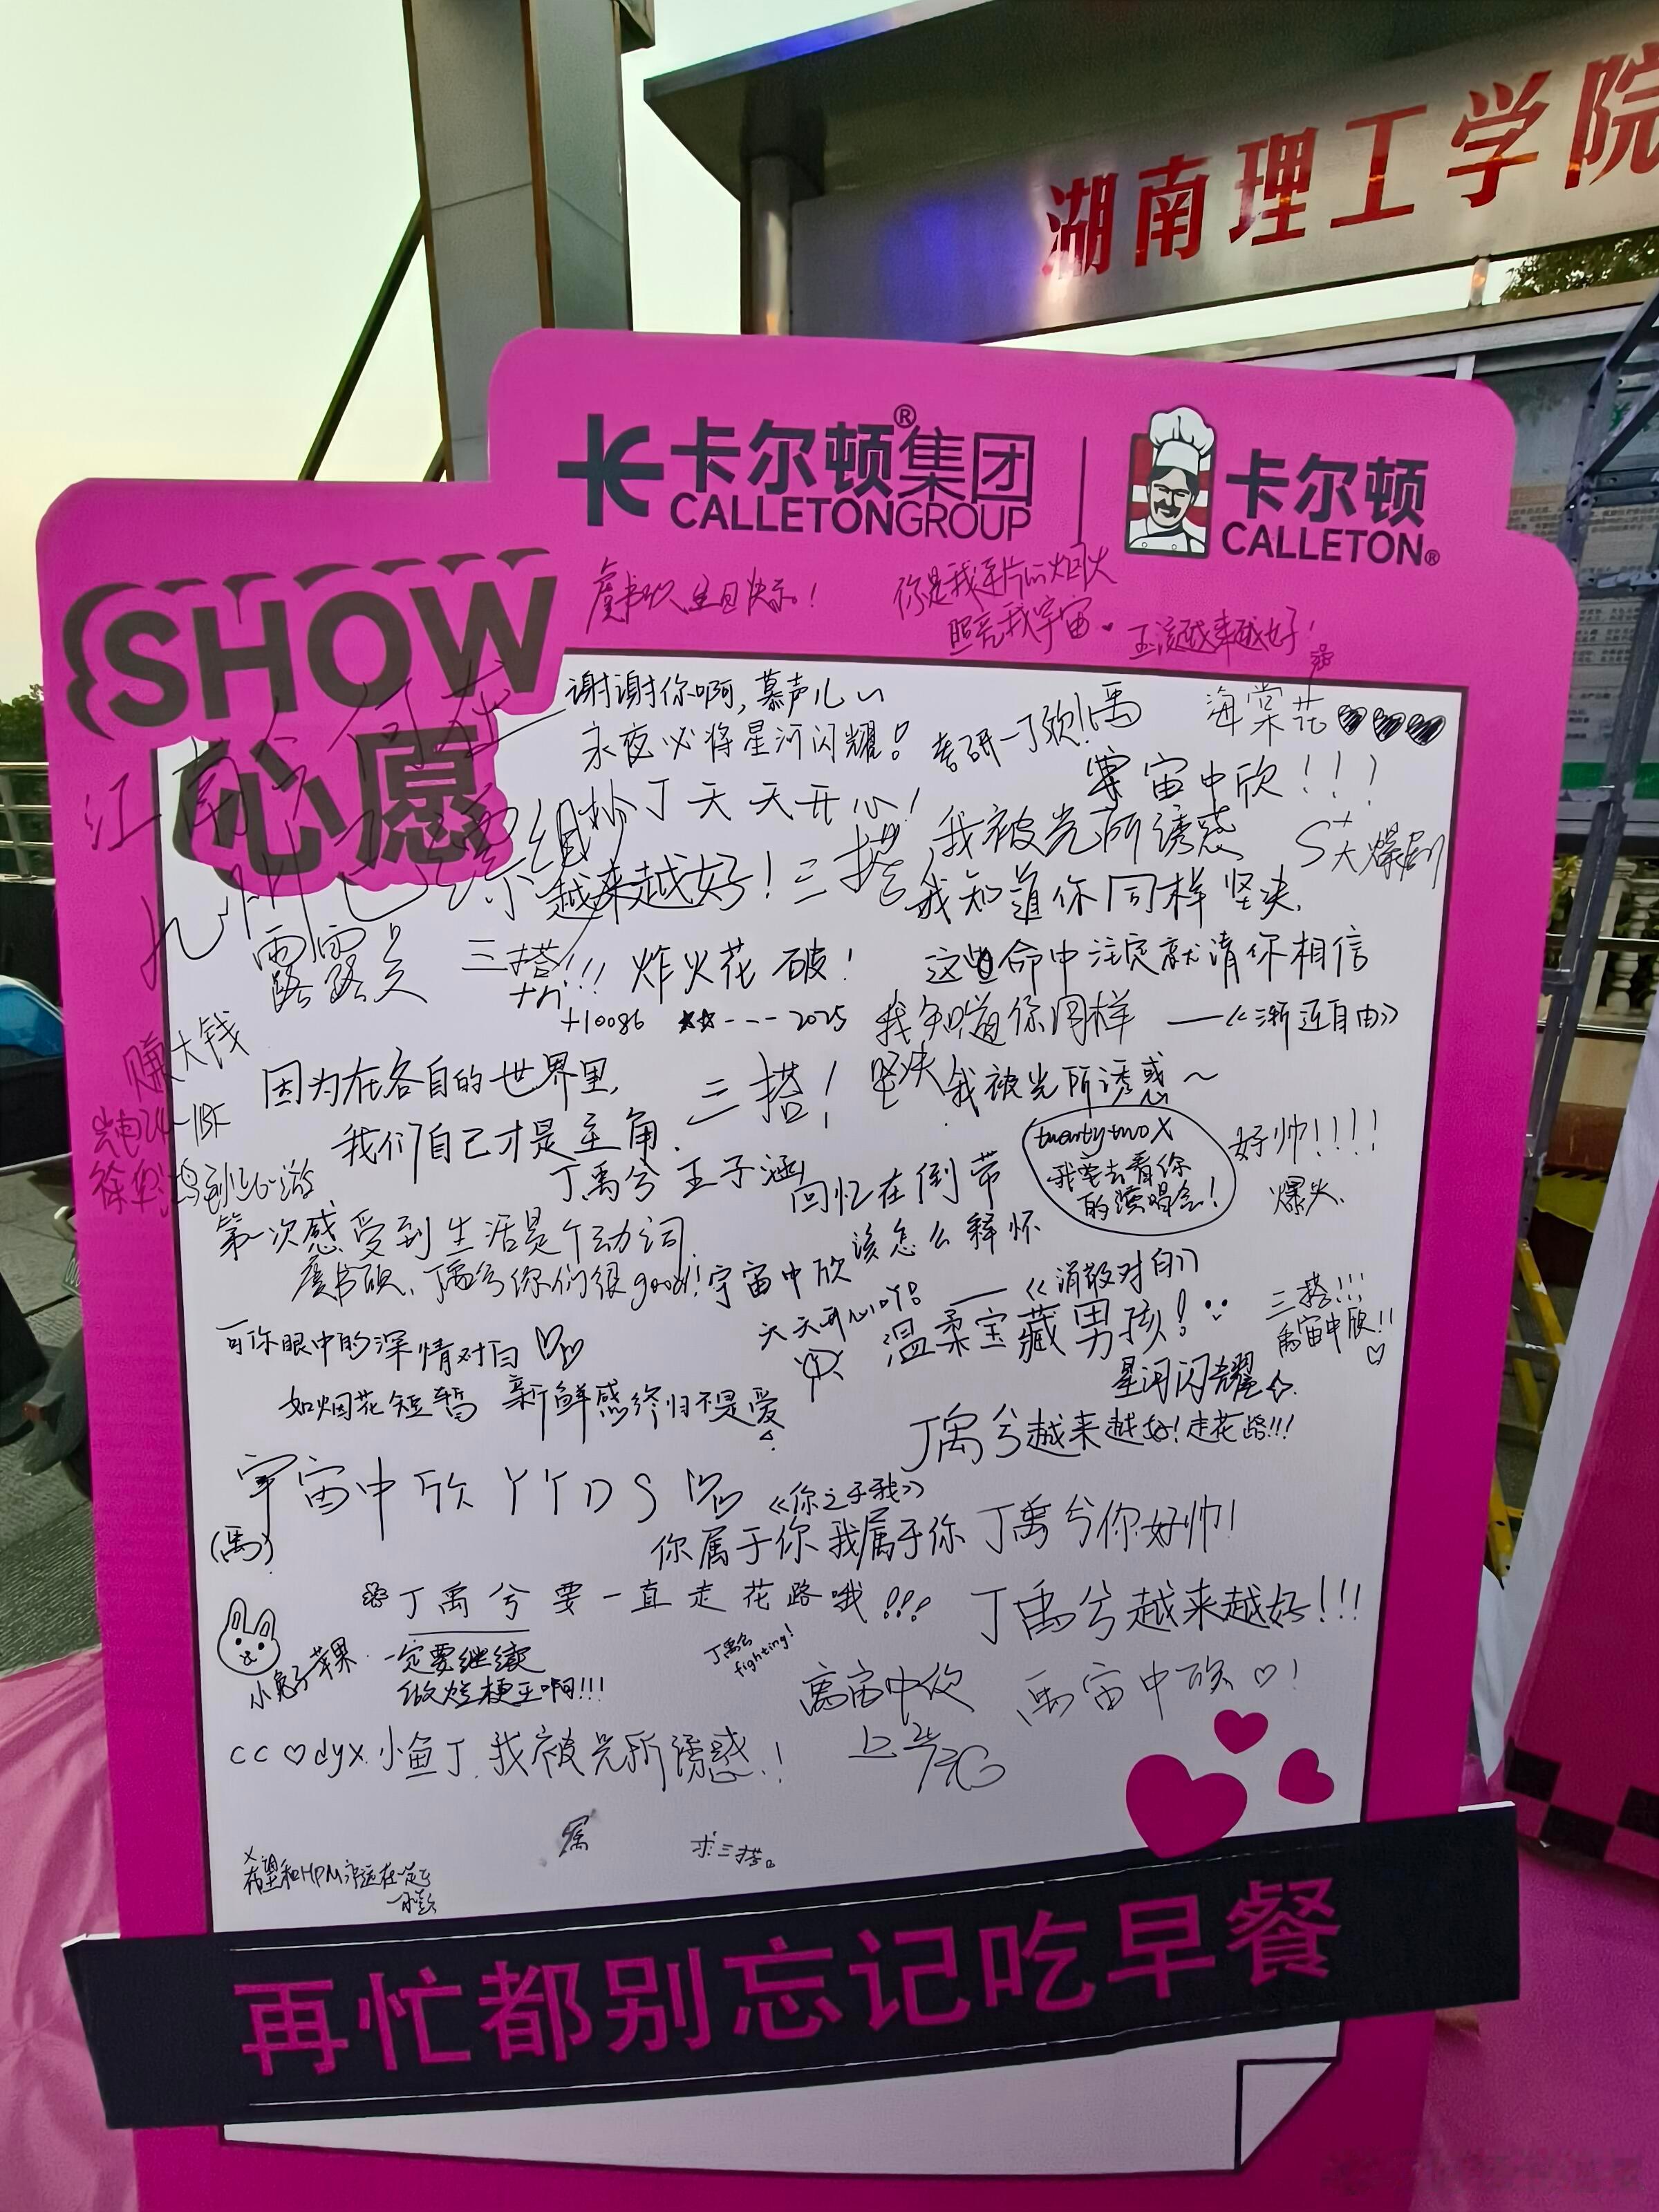 湖南理工学院
卡尔顿®集团 卡尔顿
CALLETONGROUP CALLETON®
SHOW
心愿
虞书欣生日快乐!
你是我
照亮我宇宙
越来越好!
谢谢你啊,慕声儿~
永夜必将星河闪耀!
海棠花
江南
天天开心!
宇宙中欣!!!
S+大爆剧
越来越好!三搭
我被光所诱惑
我知道你同样坚决
露露
三搭!!!
炸火花 破!
这些命中注定就请你相信
+10086
2025
我知道你同样
——《渐近自由》
赚大钱
坚决 我被光所诱惑~
因为在各自的世界里,
我们自己才是主角.
三搭!
丁禹兮 王子涵
twentytwo X
我要去看你
的演唱会!
好帅!!!!
爆火
回忆在倒带
该怎么释怀
——《消散对白》
第一次感受到生活是个动词
虞书欣、丁禹兮你们很good!宇宙中欣
天天开心
温柔宝藏男孩!
三搭!!!
禹宙中欣!!
可你眼中的深情对白
如烟花短暂 新鲜感终归不是爱
星河闪耀
丁禹兮越来越好!走花路!!!
宇宙中欣 YYDS
(禹)
《你之于我》
你属于你 我属于你
丁禹兮你好帅!
丁禹兮要一直走花路哦!!!
丁禹兮越来越好!!!
小兔子苹果
一定要继续
做烂梗王啊!!!
丁禹兮
fighting!
禹宙中欣
禹宙中欣♡!
cc♡dyx 小鱼丁 我被光所诱惑!
求三搭。
再忙都别忘记吃早餐